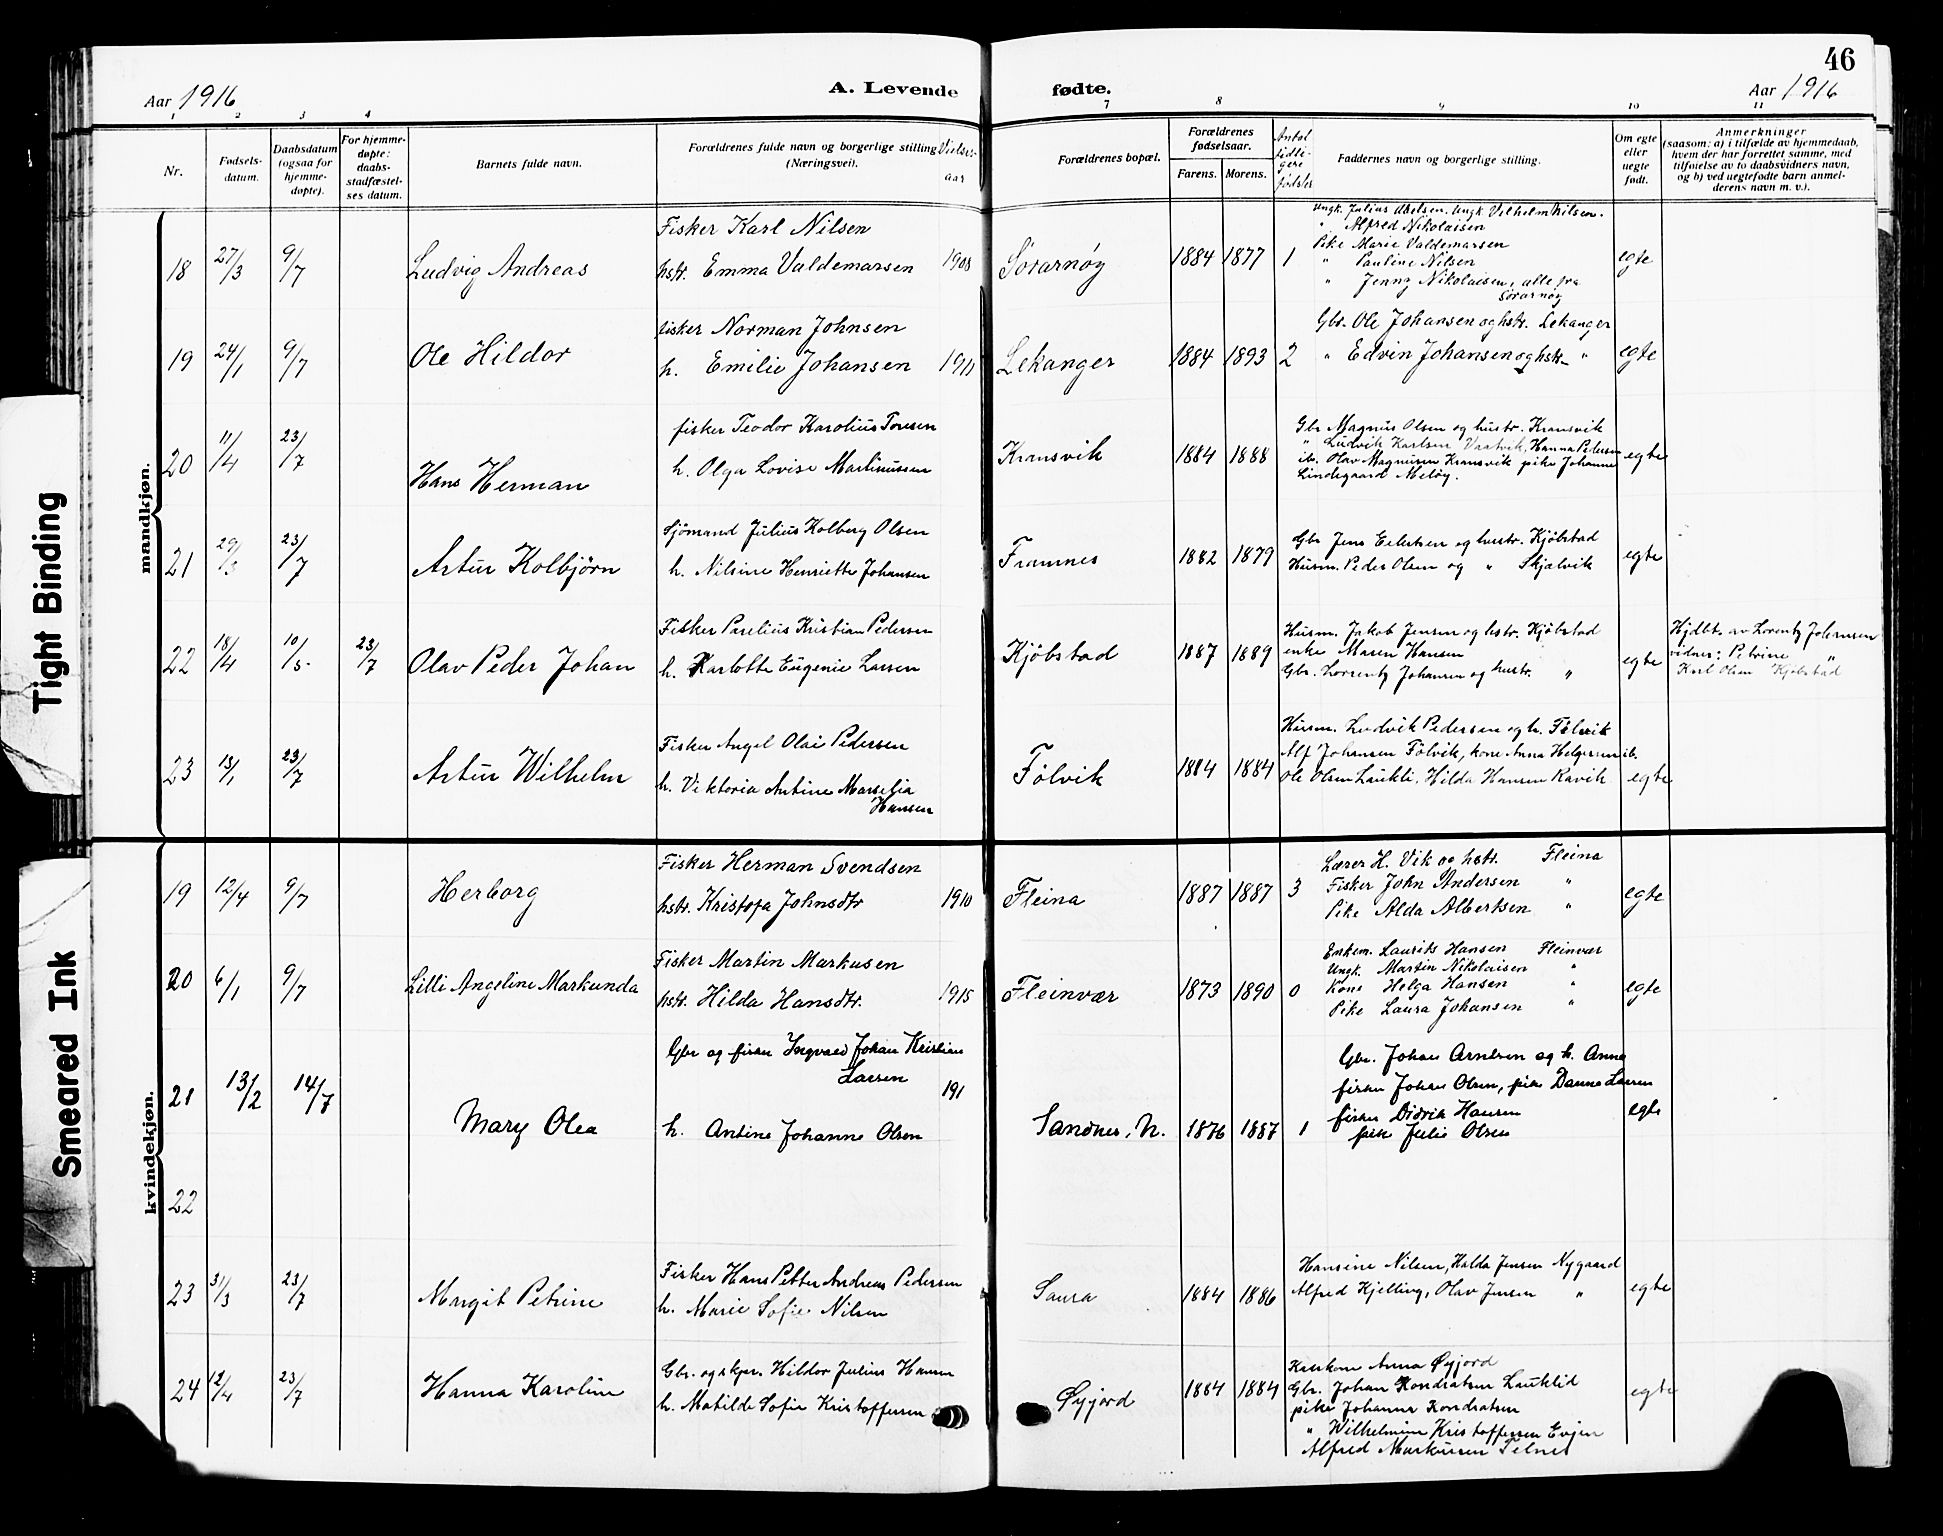 46
Aar 1916
A. Levende fødte.
Aar 1916
1 2 3 4 7 8 9 10 11
Nr.
Fødsels-
datum.
Daabsdatum
(ogsaa for
hjemme-
døpte).
For hjemme-
døpte:
daabs-
stadfæstel-
ses datum.
Barnets fulde navn.
Forældrenes fulde navn og borgerlige stilling
(Næringsvei).
Vielses-
aar
Forældrenes bopæl.
Forældrenes
fødselsaar.
Farens. Morens.
Antal
tidli-
gere
fødsler
Faddernes navn og borgerlige stilling.
Om egte
eller
uegte
født.
Anmerkninger
(saasom: a) i tilfælde av hjemmedaab,
hvem der har forrettet samme, med
tilføielse av to daabsvidners navn,
og b) ved uegtefødte barn anmel-
derens navn m. v.).
mandkjøn.
18 27/3 9/7 Ludvig Andreas
Fisker Karl Nilsen
hstr. Emma Valdemarsen 1908
Sørarnøy 1884 1877 1
Ungk. Julius Abelsen. Ungk Vilhelm Nilsen.
" Alfred Nikolaisen
Pike Marie Valdemarsen
" Pauline Nilsen
" Jenny Nikolaisen, alle fra
Sørarnøy
egte
19 24/1 9/7 Ole Hildor
fisker Norman Johnsen
h. Emilie Johansen 1911
Lekanger 1884 1893 2
Gbr. Ole Johansen og hstr. Lekanger
" Edvin Johansen og hstr "
egte
20 11/4 23/7 Hans Herman
fisker Teodor Karolius Tonesen
h. Olga Lovise Martinussen
Kransvik 1884 1888
Gbr Magnus Olsen og hustr. Kransvik
" Ludvik Karlsen Vaatvik, Hanna Pedersen
ib. Olav Magnusen Kransvik pike Johanne
Lindegaard Meløy.
egte
21 29/3 23/7 Artur Kolbjörn
Sjömand Julius Kolberg Olsen
h. Nilsine Henriette Johansen
Framnes 1882 1879
Gbr Jens Eilertsen og hustr. Kjöbstad
Husm. Peder Olsen og " Skjælvik
egte
22 18/4 10/5 23/7 Olav Peder Johan
Fisker Parelius Kristian Pedersen
h. Karlotte Eugenie Larsen
Kjöbstad 1887 1889
Husm. Jakob Jensen og hstr. Kjöbstad
enke Maren Hansen
Gbr. Lorentz Johansen og hustr. "
egte
Hjdbt. av Lorentz Johansen
vidner: Petrine "
Karl Olsen Kjöbstad
23 13/1 23/7 Artur Wilhelm
Fisker Angel Olai Pedersen
h. Viktoria Antine Marselia
Hansen
Fölvik 1884 1884
Husm. Ludvik Pedersen og h. Fölvik
Alf Johansen Fölvik, kone Anna Helgesen ib.
Ole Olsen Laukli, Hilda Hansen Ravik
egte
kvindekjøn.
19 12/4 9/7 Herborg
Fisker Herman Svendsen
hstr. Kristofa Johnsdtr 1910
Fleina 1887 1887 3
Lærer H. Vik og hstr. Fleina
Fisker John Andersen "
Pike Alda Albertsen "
egte
20 6/1 9/7 Lilli Angeline Markunda
Fisker Martin Markusen
hstr. Hilda Hansdtr. 1915
Fleinvær 1873 1890 0
Enkem. Laurits Hansen Fleinvær
Ungk. Martin Nikolaisen "
Kone Helga Hansen "
Pike Laura Johansen "
egte
21 13/2 14/7 Mary Olea
Gbr og fisker Ingvald Johan Kristian
Larsen 191
h. Antine Johanne Olsen
Sandnes, N. 1876 1887 1
Gbr. Johan Arntsen og h. Anna
fisker Johan Olsen, pike Danna Larsen
fisker Didrik Hansen
pike Julie Olsen
egte
22
23 31/3 23/7 Margit Petrine
Fisker Hans Petter Andreas Pedersen
h. Marie Sofie Nilsen
Saura 1884 1886
Hansine Nilsen, Halda Jensen Nygaard
Alfred Kjelling, Olav Jensen "
egte
24 12/4 23/7 Hanna Karoline
Gbr. og skpr. Hildor Julius Hansen
h. Matilde Sofie Kristoffersen
Øyjord 1884 1884
Anna Øyjord
Gbr. Johan Kondratsen Lauklid
pike Johanne Kondratsen
" Wilhelmine Kristoffersen Evjen
Alfred Markussen Telnes
egte
Tight Binding
Smeared Ink